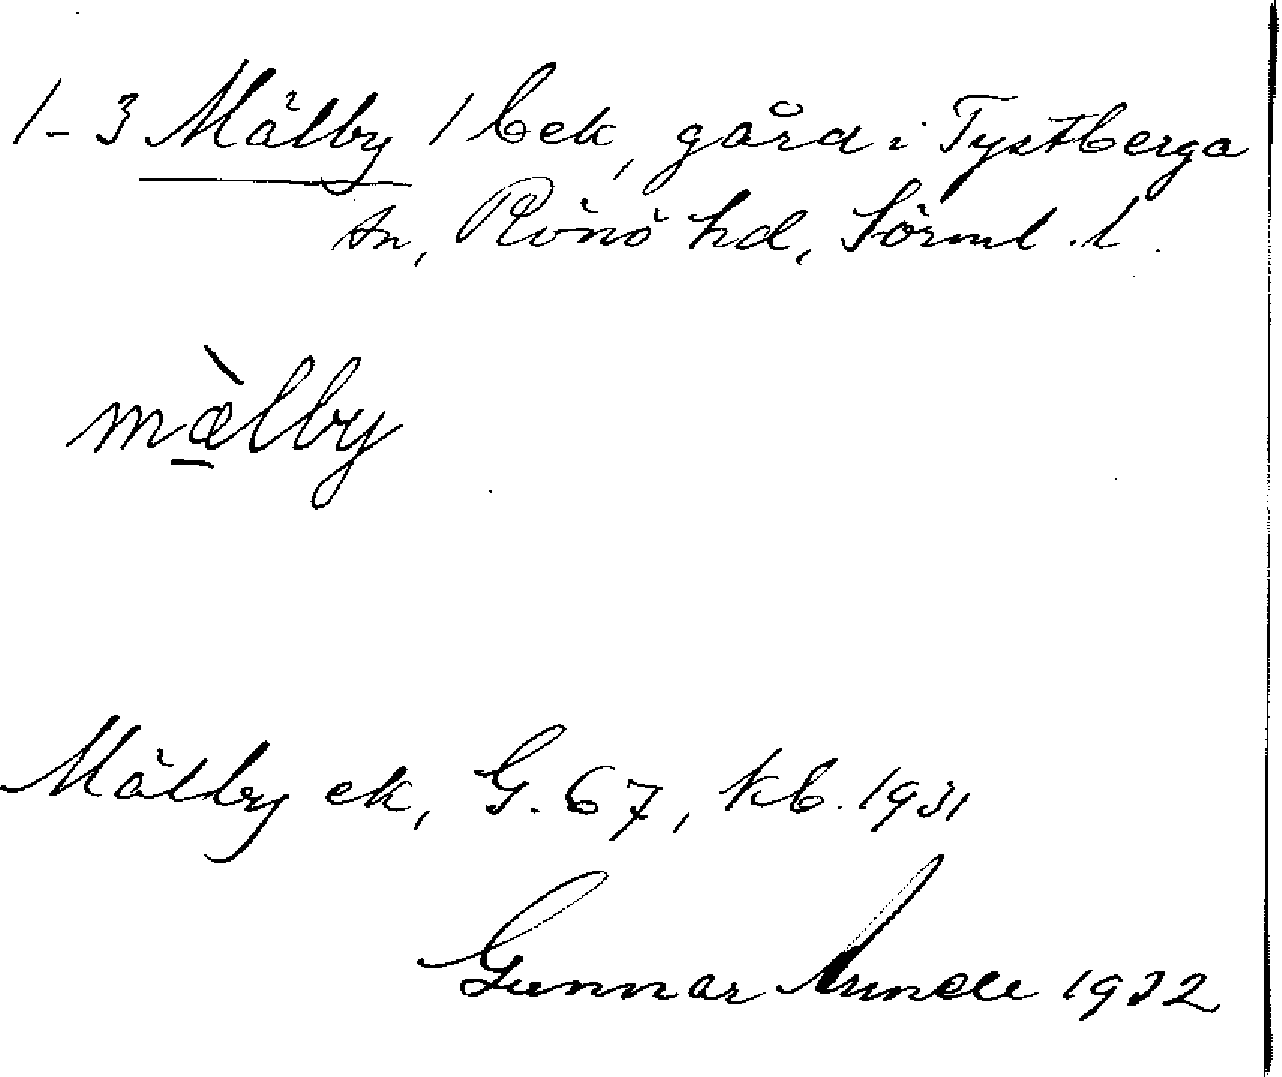 1-3 Mälby 1 bek, gård i Tystberga
sn, Rönö hd, Sörml. l.
mæ̀lby
Mälby ek, G. 67, kb. 1931
Gunnar 1932